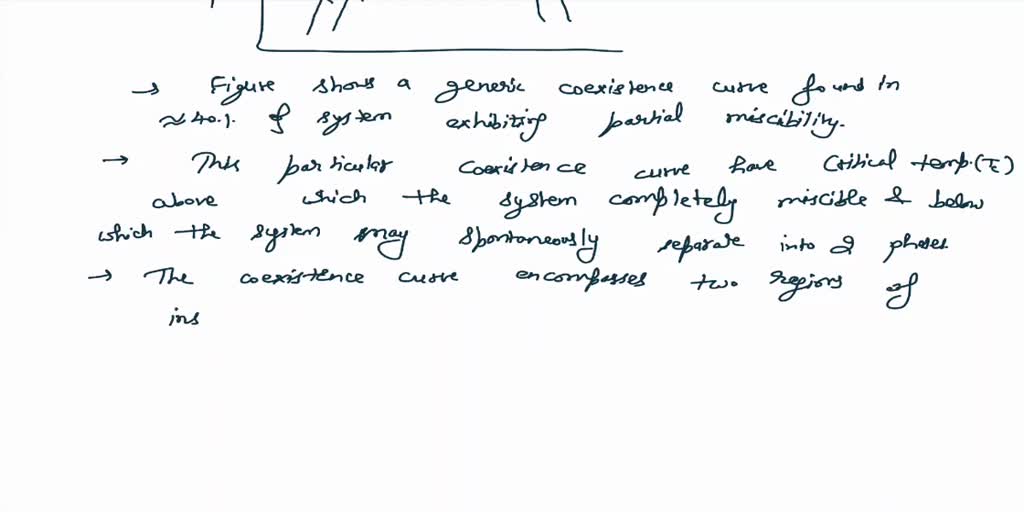 → Figure shows a generic coexistence curve found in
≈ 40.1. of system exhibiting partial miscibility.
→ This particular coexistence curve have critical temp.(Tc)
above which the system completely miscible & below
which the system may spontaneously separate into 2 phases
→ The coexistence curve encompasses two regions of
ins